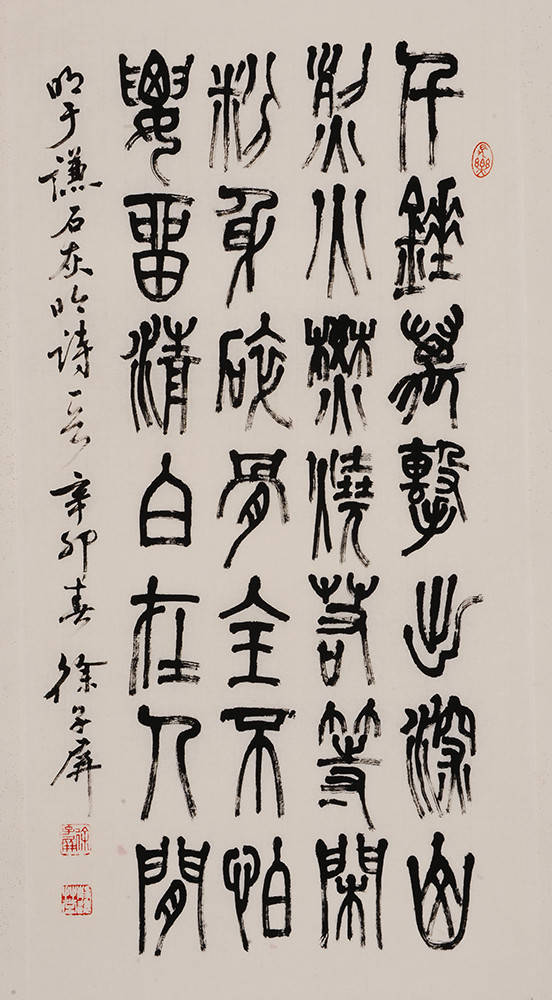 千錘萬擊出深山
烈火焚燒若等閑
粉身碎骨全不怕
要留清白在人閒
明于謙石灰吟詩一首 辛卯春 徐子屏
長樂